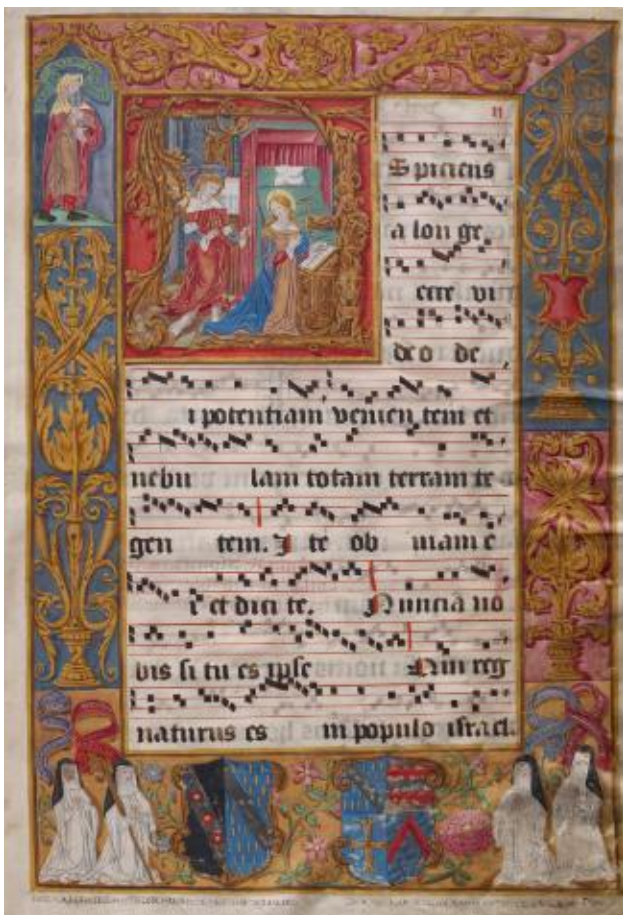 II
Spiciens
a lon ge
ecce vi
deo de
i potentiam venien tem et
nebu lam totam terram te
gen tem. I te ob uiam e
i et dici te. Nuncia no
bis si tu es ipse Qui reg
naturus es in populo israel.